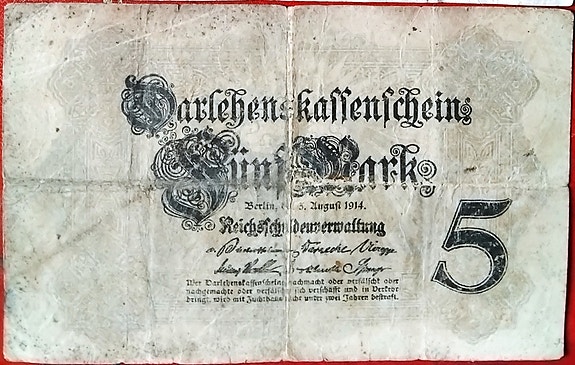 Darlehenskassenschein
Fünf Mark
Berlin, den 5. August 1914.
Reichsschuldenverwaltung
5
Wer Darlehenskassenscheine nachmacht oder verfälscht oder
nachgemachte oder verfälschte sich verschafft und in Verkehr
bringt, wird mit Zuchthaus nicht unter zwei Jahren bestraft.